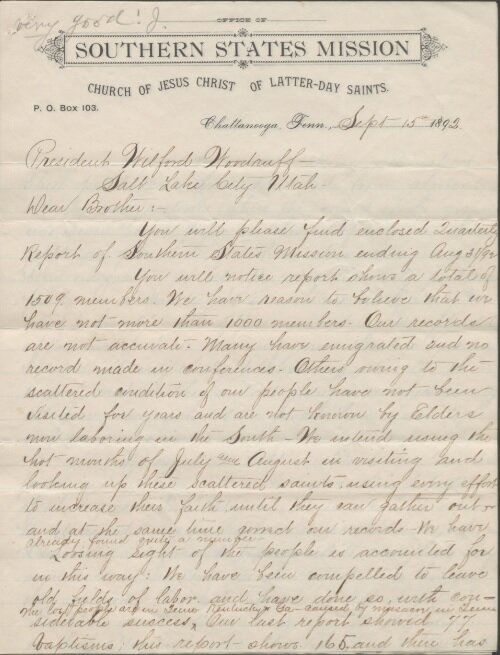 very good! J.
OFFICE OF
SOUTHERN STATES MISSION
CHURCH OF JESUS CHRIST OF LATTER-DAY SAINTS.
P. O. Box 103.
Chattanooga, Tenn., Sept 15th 1892
President Wilford Woodruff—
Salt Lake City Utah—
Dear Brother:—
You will please find enclosed Quarterly
Report of Southern States Mission ending Aug 31/92
You will notice report shows a total of
1509 members. We have reason to believe that we
have not more than 1000 members. Our records
are not accurate. Many have emigrated and no
record made in conferences. Others owing to the
scattered condition of our people have not been
visited for years and are not known by Elders
now laboring in the South— We intend using the
hot months of July and August in visiting and
looking up these scattered saints, using every effort
to increase their faith until they can gather out
and at the same time correct our records— We have
already found quite a number.
Loosing sight of the people is accounted for
in this way: We have been compelled to leave
old fields of labor and have done so, with con-
The lost people are in Tenn Kentucky & Ga— caused by massacre in Tenn
siderable success. Our last report showed 77
baptisms; this report shows 165. and there has